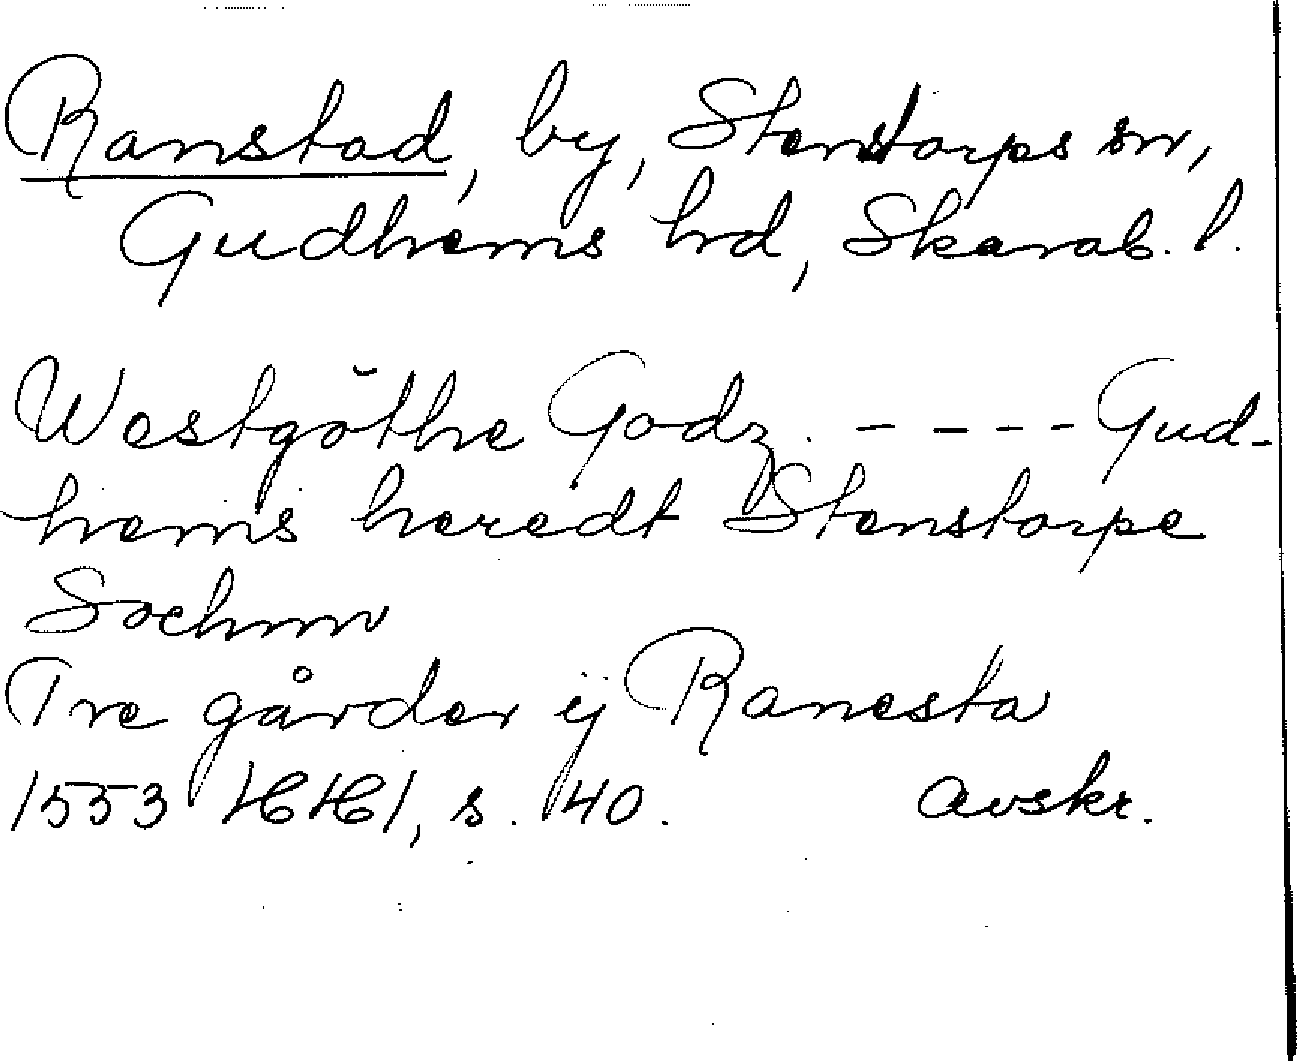 Ranstad, by, Stenstorps sn,
Gudhems hrd, Skarab. l.
Westgöthe Godz. - - - - Gud-
hems heredt Stenstorpe
Sochnn
Tre gårder ij Ranesta
1553 HH1, s. 40. Avskr.